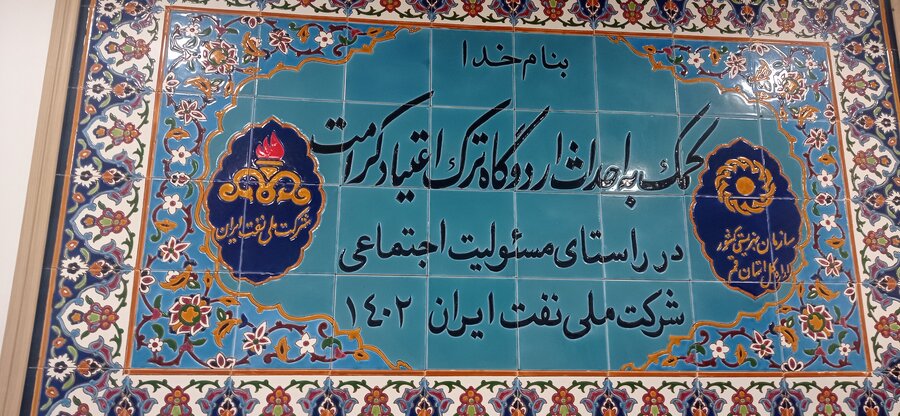 بنام خدا
کمک به احداث اردوگاه ترک اعتیاد کرامت
در راستای مسئولیت اجتماعی
شرکت ملی نفت ایران ۱۴۰۲
سازمان بهزیستی کشور
اداره کل استان قم
شرکت ملی نفت ایران